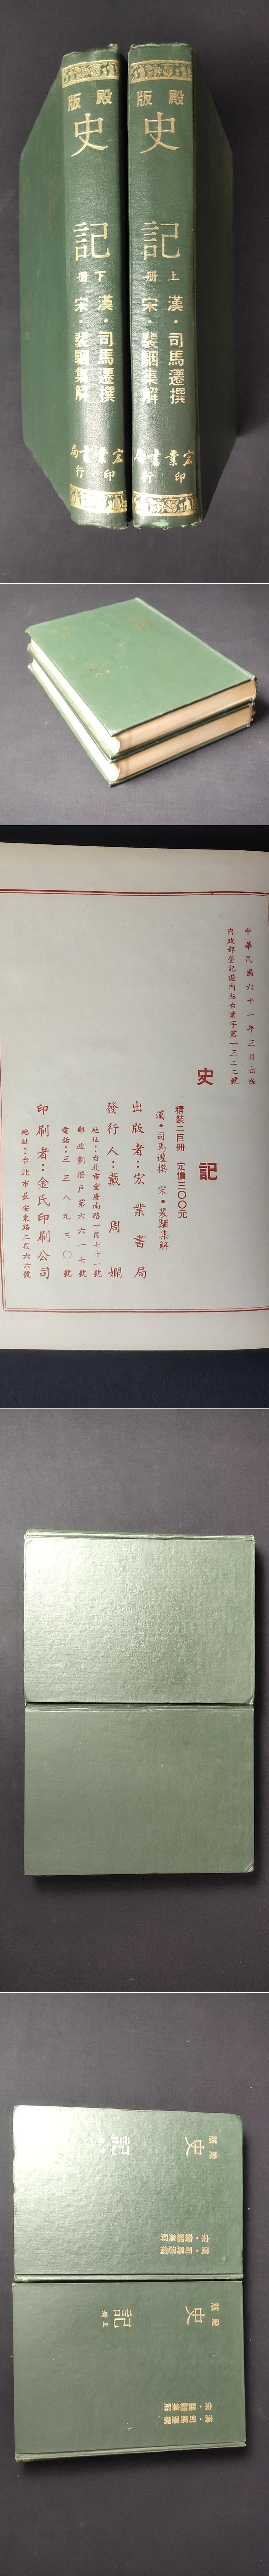 殿版
史記
下冊
漢·司馬遷撰
宋·裴駰集解
宏業書局
印行
殿版
史記
上冊
漢·司馬遷撰
宋·裴駰集解
宏業書局
印行
中華民國六十一年三月出版
內政部登記證內版台業字第一三二二號
史記
精裝二巨冊 定價三〇〇元
漢·司馬遷撰 宋·裴駰集解
出版者：宏業書局
發行人：戴周嫻
地址：台北市重慶南路一段七十一號
郵政劃撥戶第六六一七號
電話：三三八九三〇號
印刷者：金氏印刷公司
地址：台北市長安東路二段六六號
殿版
史記
漢·司馬遷撰
宋·裴駰集解
殿版
史記
上冊
漢·司馬遷撰
宋·裴駰集解